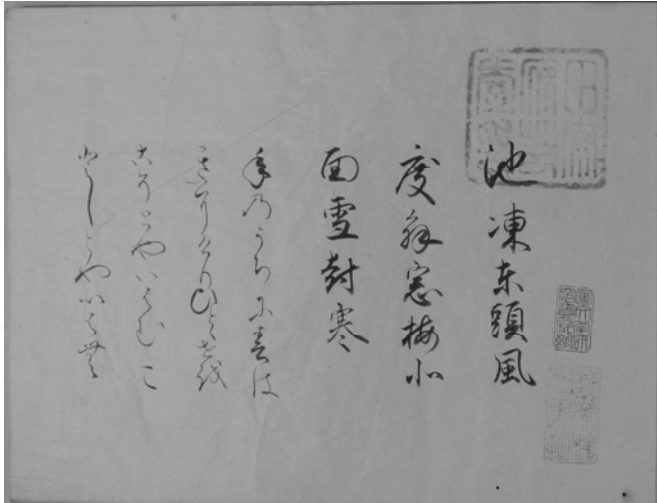 池凍東頭風
度解窓梅北
面雪封寒
年乃うちに春は
きにけりひとせを
こそとやいはむこ
としとやいはむ